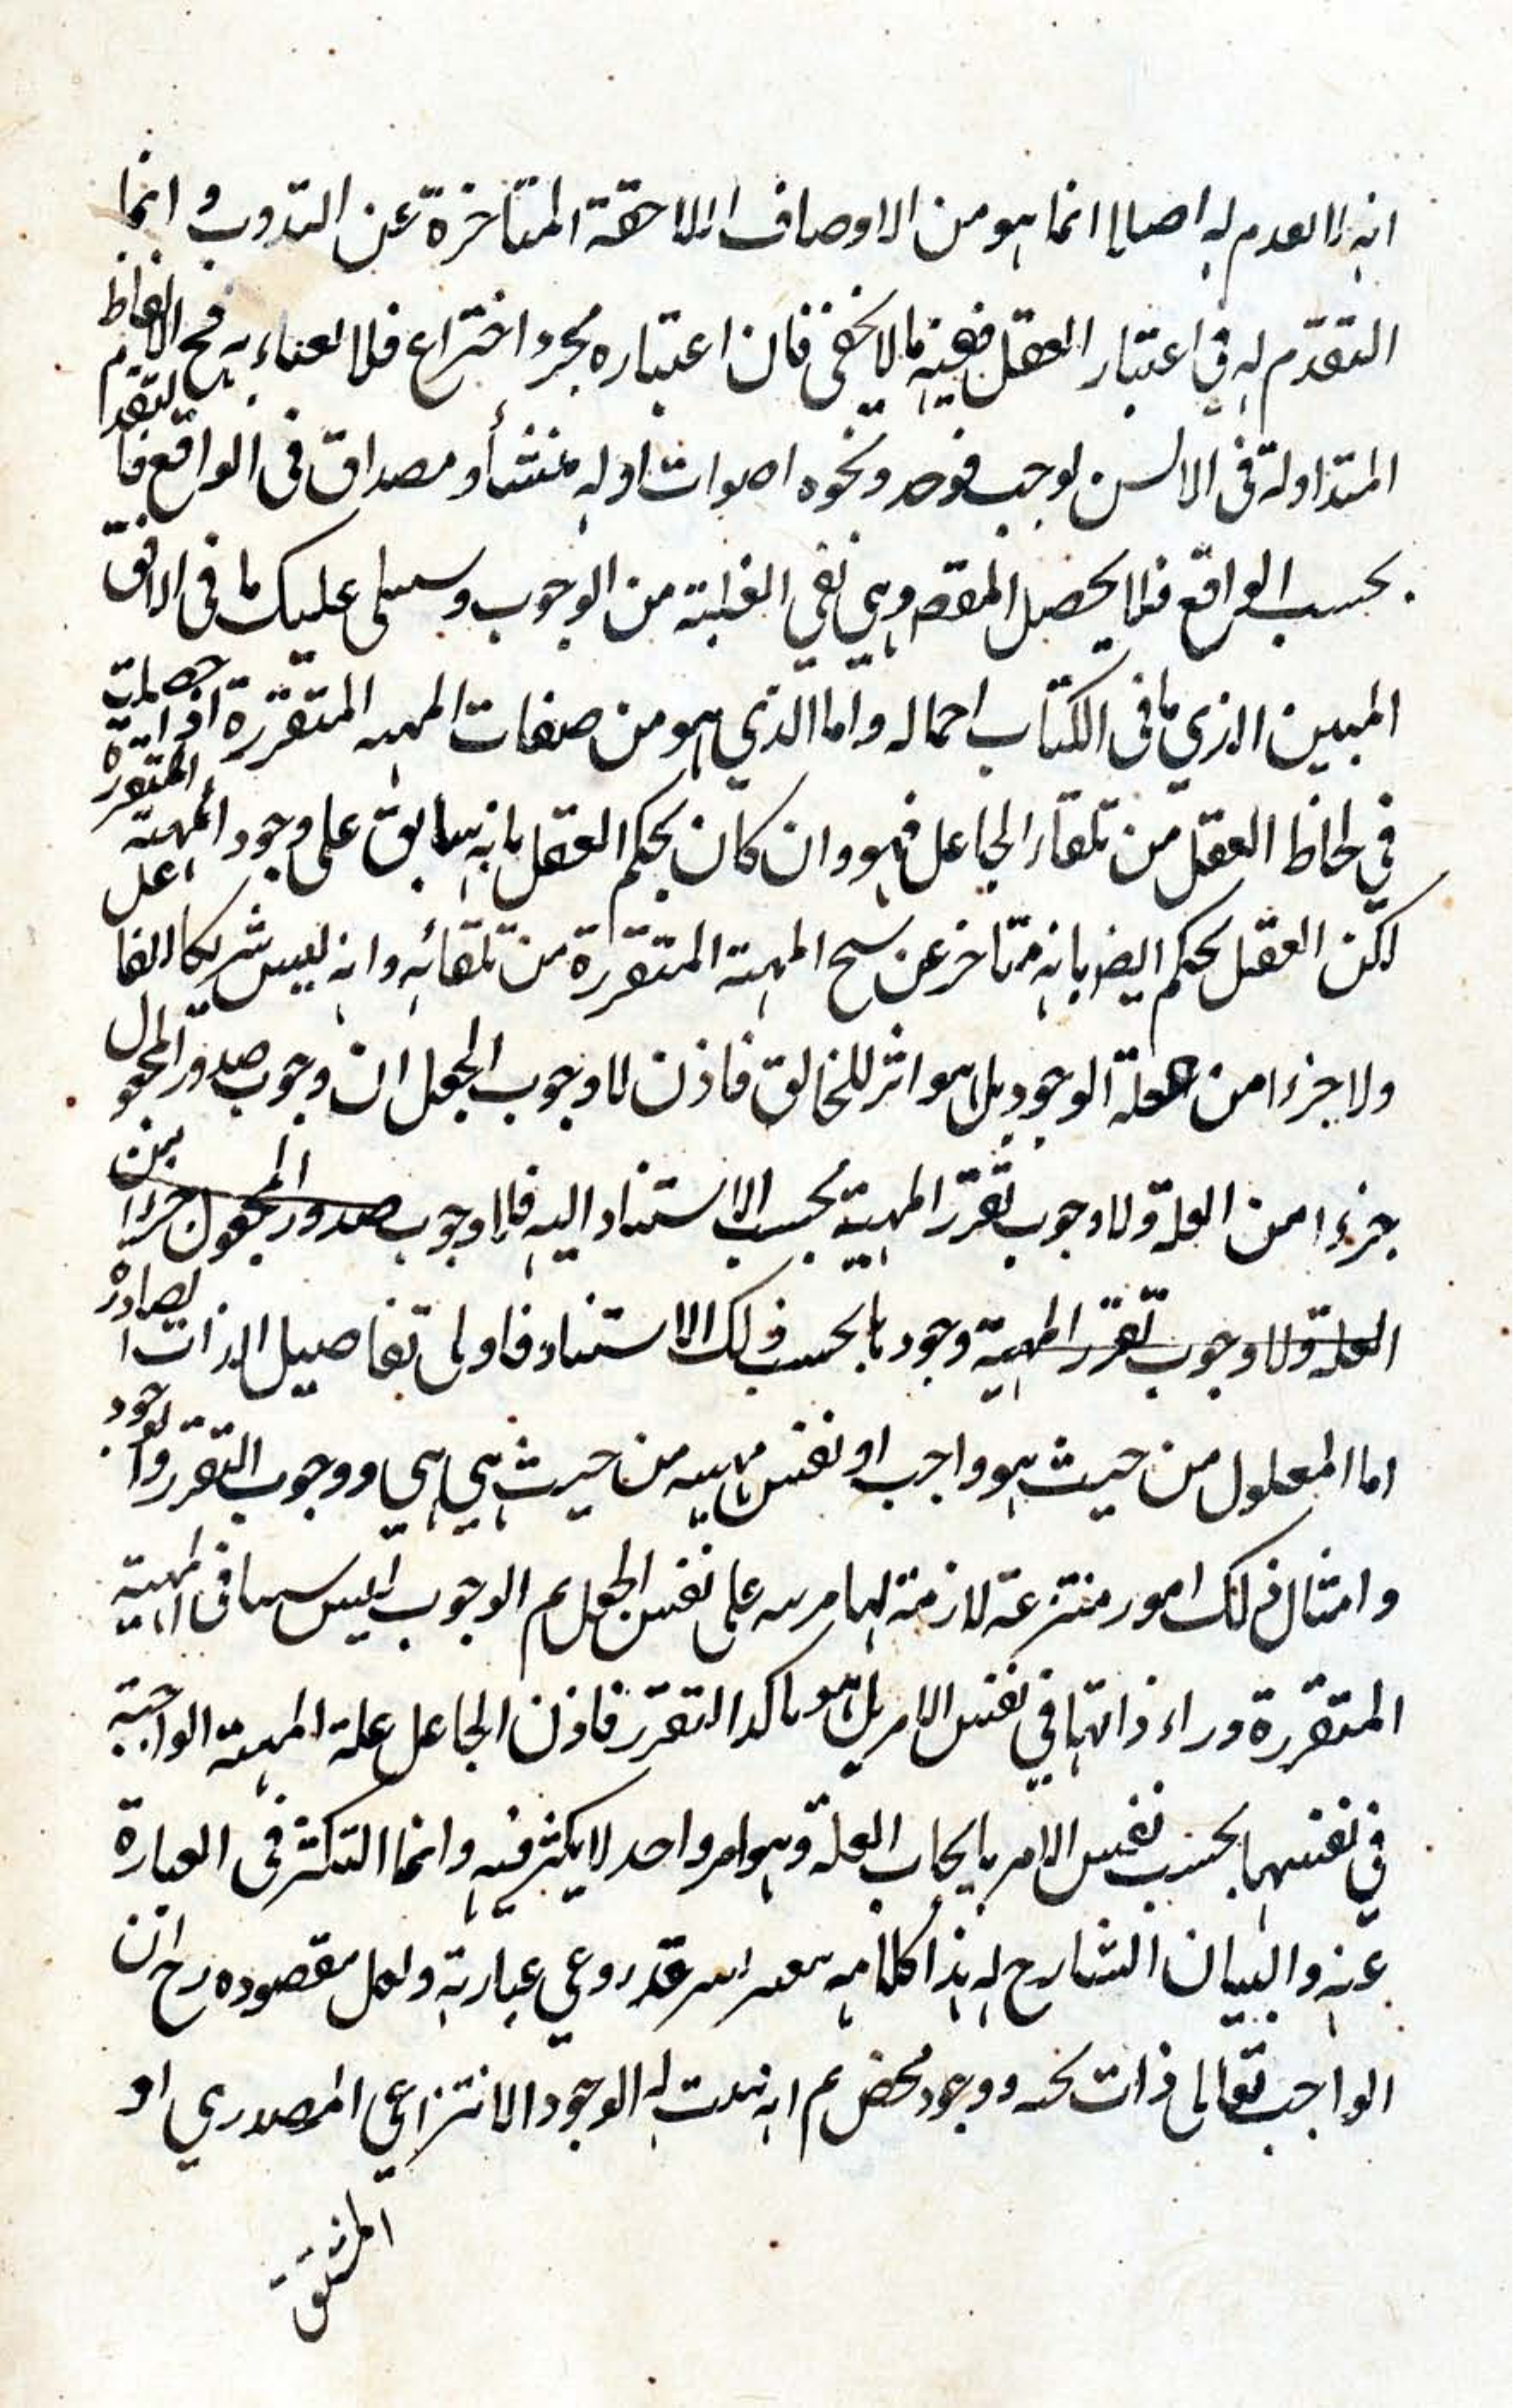 انه لا تقدم له اصلا انما هو من الاوصاف اللاحقة المتاخرة عن الثبوت و انما
التقدم له فى اعتبار العقل ففيه ما لا يخفى فان اعتباره مجرد اختراع فلا اعتناء به فح الالفاظ
المتداولة فى الالسن لوجب فوجد ونحوه اصوات او له منشأ ومصداق فى الواقع فالتقدم
بحسب الواقع فلا يحصل المقصد وهى نفى العلية من الوجوب وسيتلى عليك ما فى الافق
المبين الذي ما فى الكتاب اجماله واما الذي هو من صفات المهية المتقررة اذا حصلت
فى لحاظ العقل من تلقاء الجاعل فهو وان كان يحكم العقل بانه سابق على وجود المهية المتقررة
لكن العقل يحكم ايضا بانه متاخر عن سنخ المهية المتقررة من تلقائه وانه ليس شريكا للفاعل
ولا جزءا من علة الوجود بل هو اثر للخالق فاذن لا وجوب الجعل ان وجوب صدور المجعول
جزءا من العلة ولا وجوب تقرر المهية بحسب الاستناد اليه فلا وجوب صدور المجعول جزءا من
العلة ولا وجوب تقرر المهية وجودها بحسب ذلك الاستناد فاولى تفاصيل الذات الصادرة
اما المعلول من حيث هو واجب او نفس مهيته من حيث هي هي ووجوب التقرر والوجود
وامثال ذلك امور منتزعة لازمة لها مرتبة على نفس الجعل ثم الوجوب ليس شيئا فى المهية
المتقررة وراء ذاتها في نفس الامر بل هو تاكد التقرر فاذن الجاعل علة المهية الواجبة
فى نفسها بحسب نفس الامر بايجاب العلة وهو امر واحد لا يكثر فيه وانما التكثر فى العبارة
عنه والبيان الشارح له هذا كلامه قد روعي عبارته ولعل مقصوده رح ان
الواجب تعالى ذات بحت ووجود محض ثم انه يثبت له الوجود الانتزاعي المصدري او
المشتق